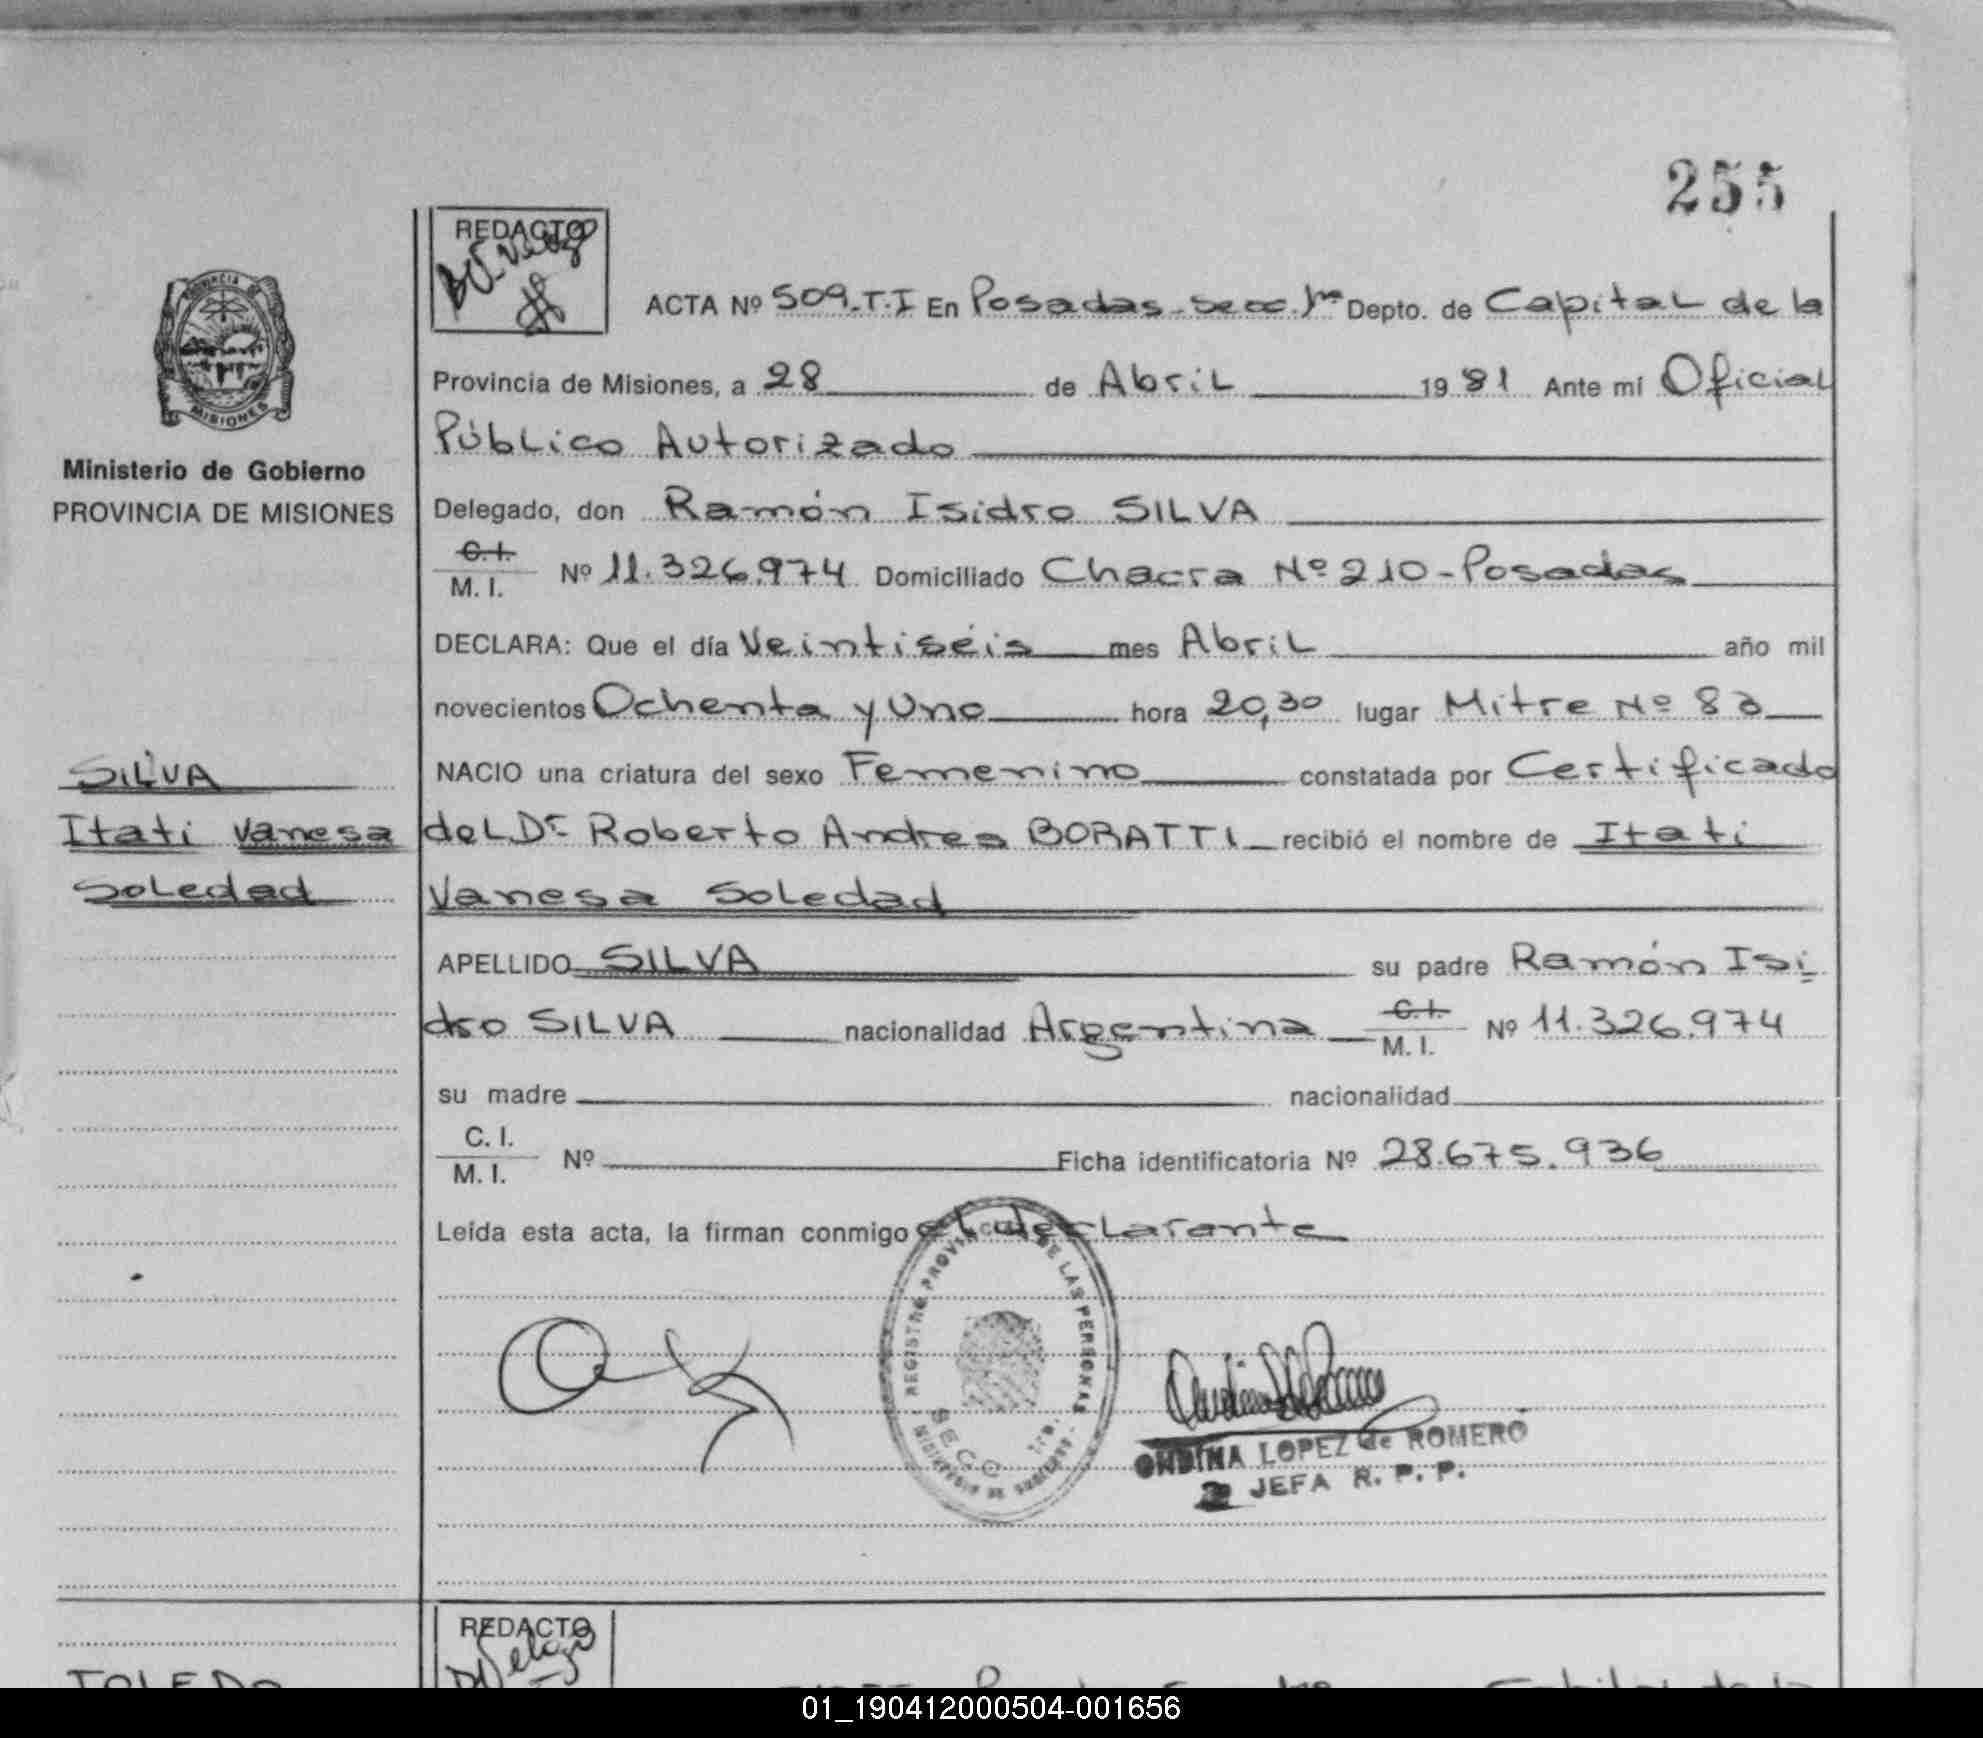 255
REDACTO
ACTA Nº 509.T.I En Posadas-secc.1ra Depto. de Capital de la
Provincia de Misiones, a 28 de Abril 1981 Ante mí Oficial
Público Autorizado
Delegado, don Ramón Isidro SILVA
C.I.
M. I. Nº 11.326.974 Domiciliado Chacra Nº 210-Posadas
DECLARA: Que el día Veintiséis mes Abril año mil
novecientos Ochenta y Uno hora 20,30 lugar Mitre Nº 83
NACIO una criatura del sexo Femenino constatada por Certificado
del Dr Roberto Andres BORATTI recibió el nombre de Itati
Vanesa Soledad
APELLIDO SILVA su padre Ramón Isi
dro SILVA nacionalidad Argentina C.I.
M. I. Nº 11.326.974
su madre nacionalidad
C. I.
M. I. Nº Ficha identificatoria Nº 28.675.936
Leída esta acta, la firman conmigo el declarante
REGISTRO PROVINCIAL DE LAS PERSONAS
SECC 1ra.
MINISTERIO DE GOBIERNO
ONDINA LOPEZ de ROMERO
JEFA R. P. P.
PROVINCIA DE
MISIONES
Ministerio de Gobierno
PROVINCIA DE MISIONES
SILVA
Itati Vanesa
Soledad
REDACTO
TOLEDO
01_190412000504-001656